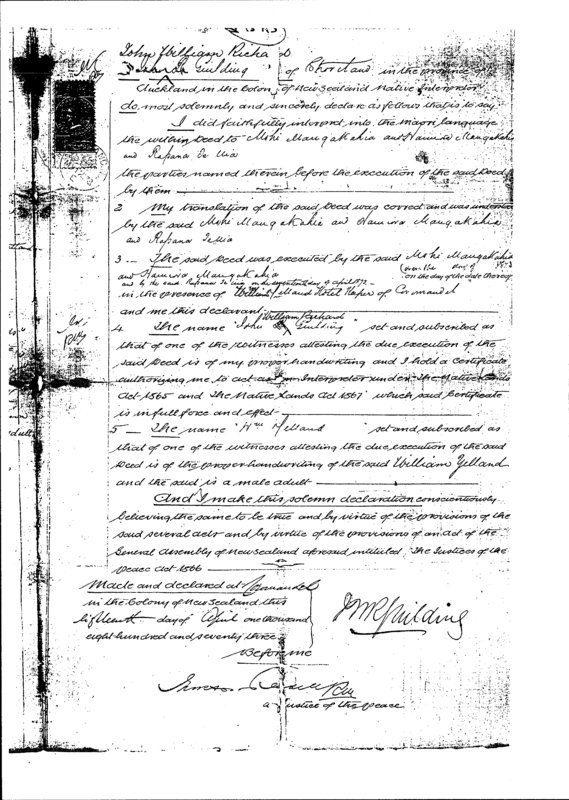 John William Richard
Guilding of Shortland in the province of
Auckland in the Colony of New Zealand Native Interpreter
do most solemnly and sincerely declare as follows that is to say
I did faithfully interpret into the maori language
the within Deed to Mohi Mangakahia and Hamiora Mangakahia
and Rapana Te
the parties named therein before the execution of the said Deed
by them
2 My translation of the said Deed was correct and was understood
by the said Mohi Mangakahia and Hamiora Mangakahia
and Rapana
3 The said Deed was executed by the said Mohi Mangakahia
and Hamiora Mangakahia on the day of the date thereof
and by the said Rapana on the day of April
in the presence of William Yelland Hotel Keeper of Coromandel
and me this declarant
William Richard
4 The name "John Guilding" set and subscribed as
that of one of the witnesses attesting the due execution of the
said Deed is of my proper handwriting and I hold a certificate
authorizing me to act as an Interpreter under The Native Lands
Act 1865 and The Native Lands Act 1867 which said Certificate
is in full force and effect
5 The name "Wm Yelland" set and subscribed as
that of one of the witnesses attesting the due execution of the said
Deed is of the proper handwriting of the said William Yelland
and the said is a male adult
And I make this solemn declaration conscientiously
believing the same to be true and by virtue of the provisions of the
said several acts and by virtue of the provisions of an act of the
General Assembly of New Zealand aforesaid intituled The Justices of the
peace Act 1866
Made and declared at Coromandel
in the Colony of New Zealand this
fifteenth day of April one thousand
eight hundred and seventy three
Before me
JWR Guilding
a Justice of the peace